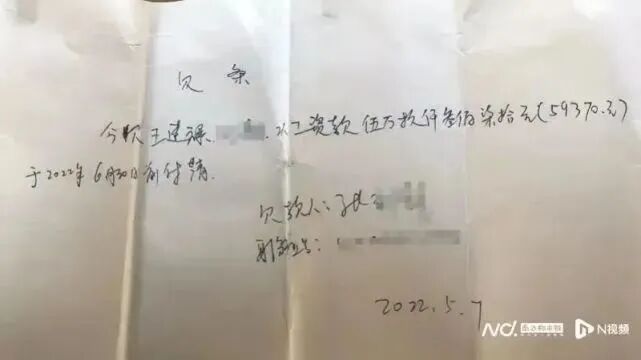 欠条
今欠王建课 人工资款伍万玖仟叁佰柒拾元(59370.元)
于2022年6月30日前付清.
欠款人:张
身份证号:
2022.5.7
N 南方都市报 N视频